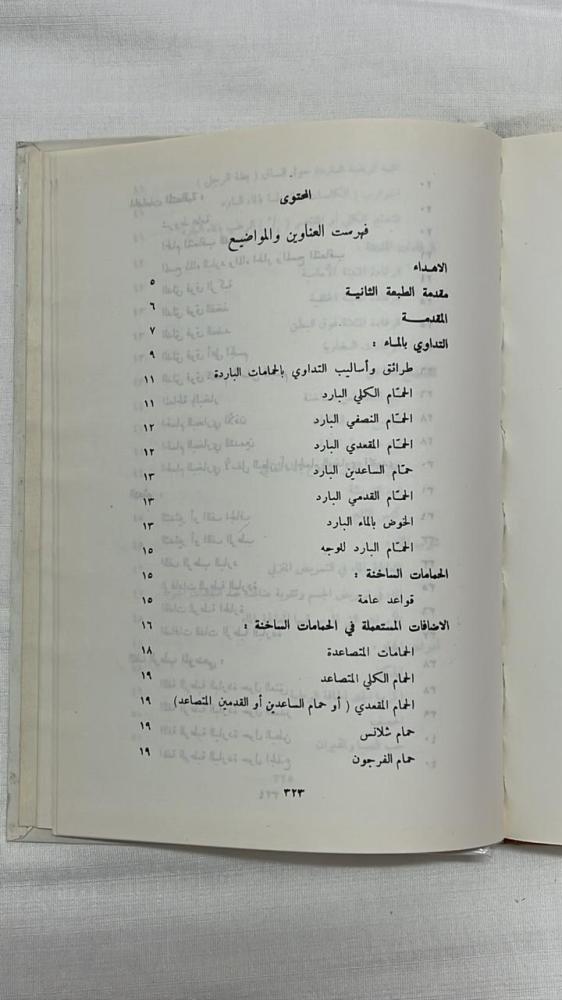 المحتوى
فهرست العناوين والمواضيع
الاهداء ٥
مقدمة الطبعة الثانية ٦
المقدمــة ٧
التداوي بالماء : ٩
طرائق وأساليب التداوي بالحمامات الباردة ١١
الحمّام الكلي البارد ١١
الحمّام النصفي البارد ١٢
الحمّام المقعدي البارد ١٢
حمّام الساعدين البارد ١٣
الحمّام القدمي البارد ١٣
الخوض بالماء البارد ١٣
الحمّام البارد للوجه ١٥
الحمامات الساخنة : ١٥
قواعد عامة ١٥
الاضافات المستعملة في الحمامات الساخنة : ١٦
الحمامات المتصاعدة ١٨
الحمام الكلي المتصاعد ١٩
الحمام المقعدي ( أو حمام الساعدين أو القدمين المتصاعد) ١٩
حمام شلانس ١٩
حمام الفرجون ١٩
٣٢٣